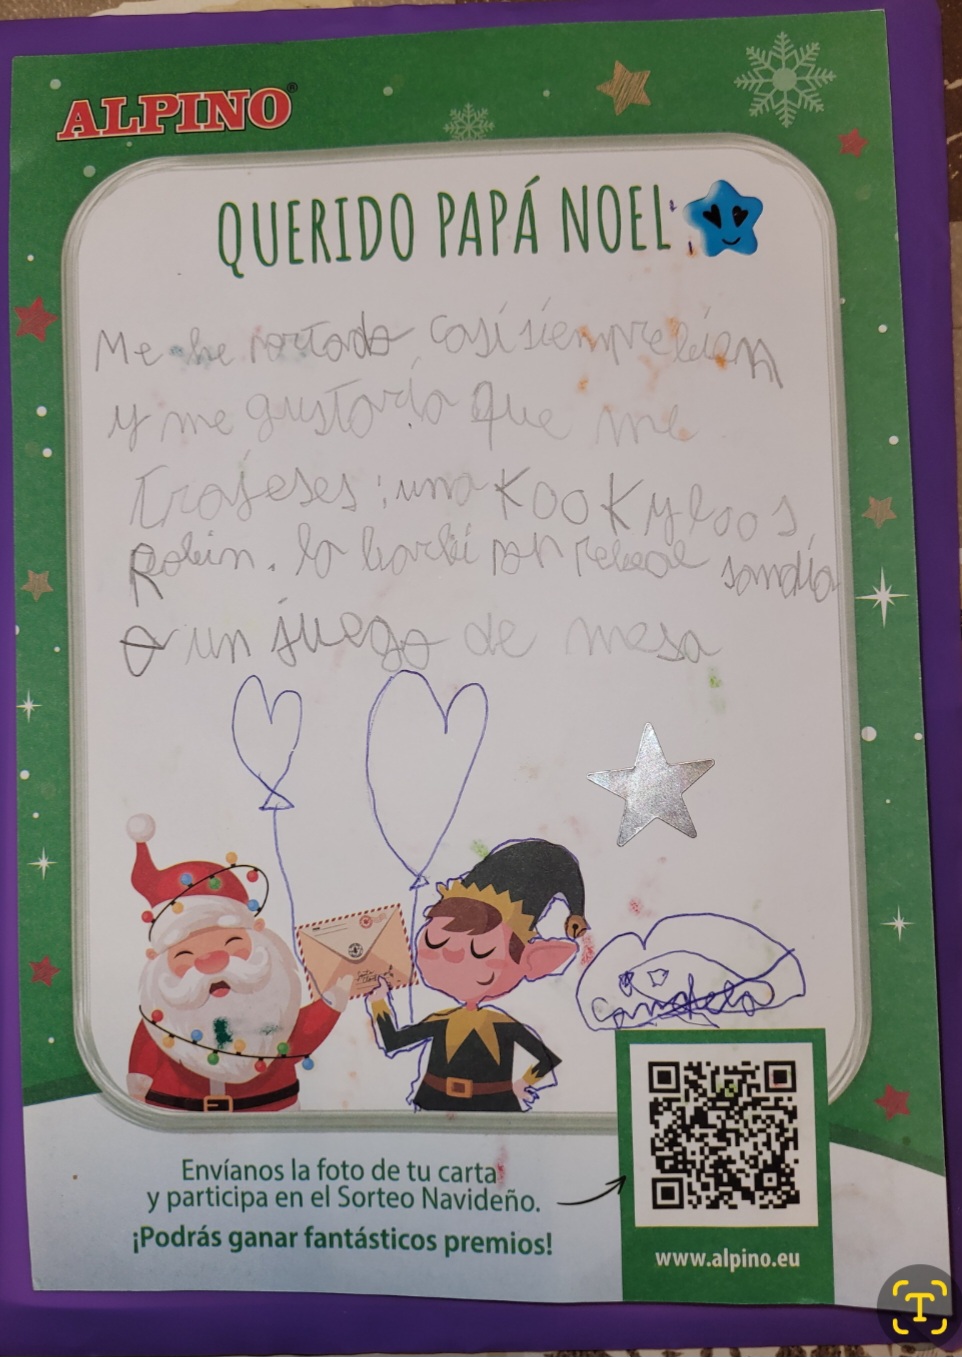 ALPINO®
QUERIDO PAPÁ NOEL:
Me he portado casi siempre bien
y me gustaría que me
trajeses: una KOOKyloos
Robin. la barbi pop rebeal sandía
O un juego de mesa
Candela
Envíanos la foto de tu carta
y participa en el Sorteo Navideño.
¡Podrás ganar fantásticos premios!
www.alpino.eu